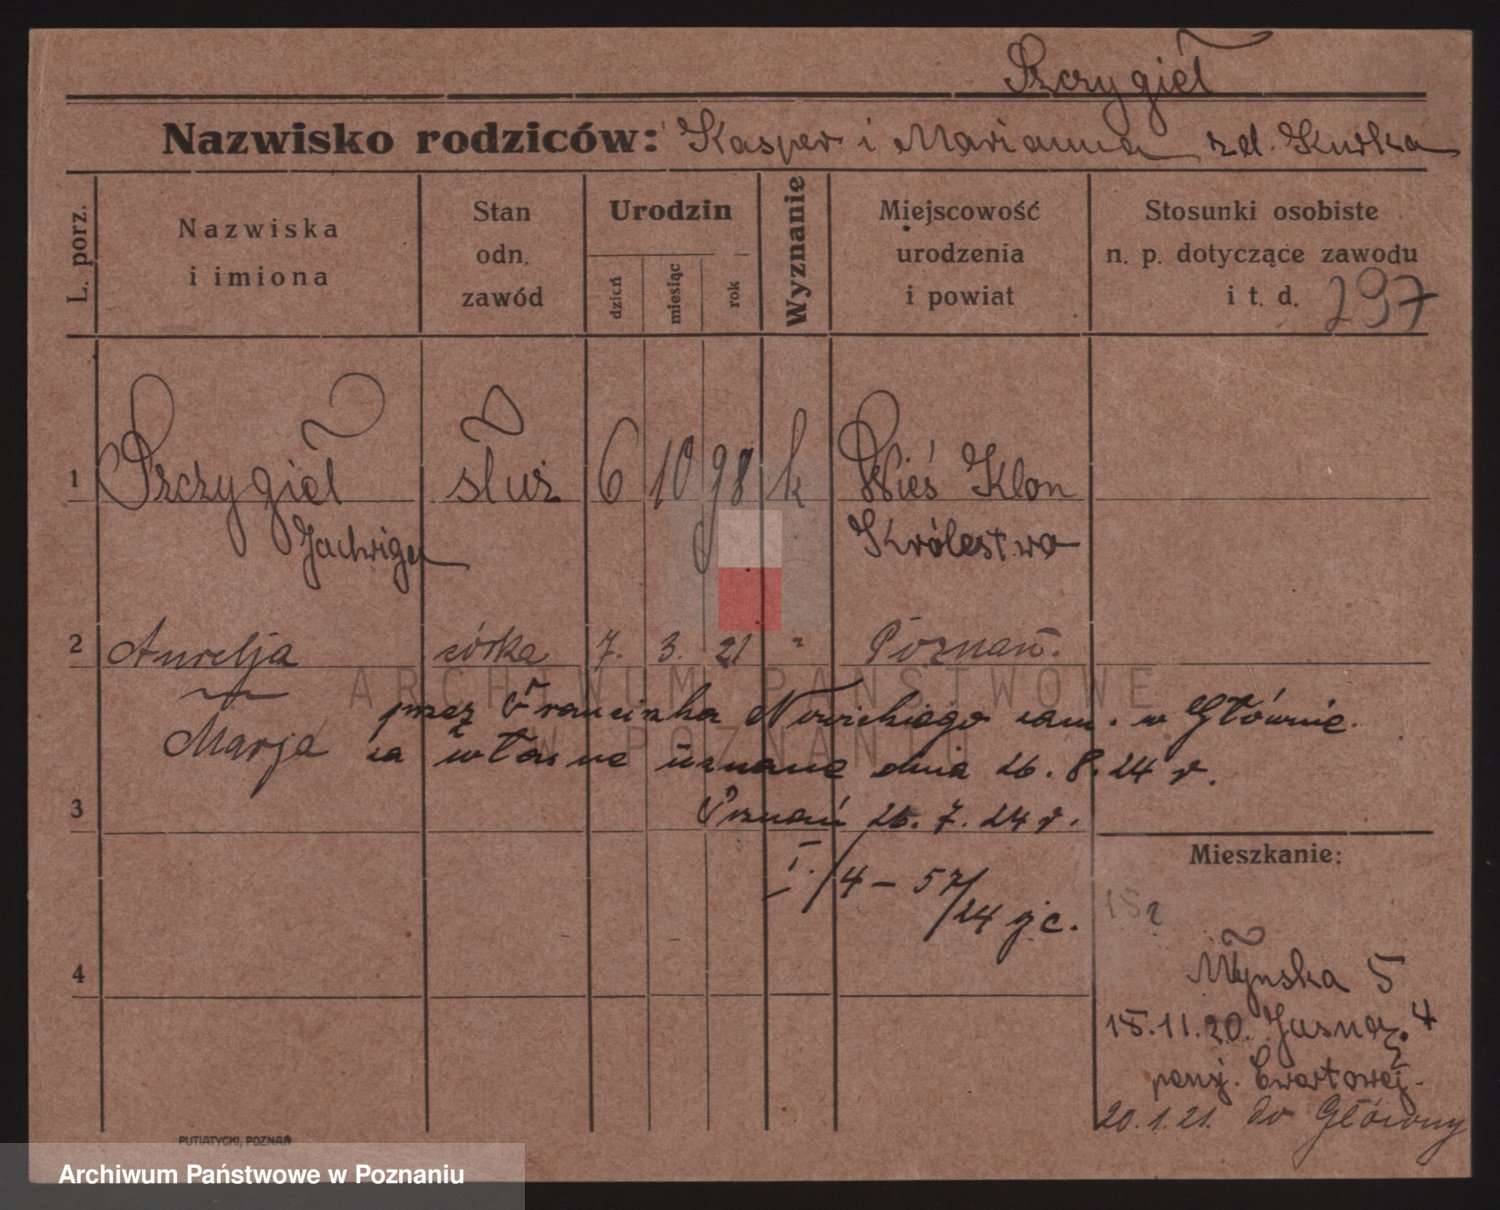 Szczygieł
Nazwisko rodziców: Kasper i Marianna zd. Kurka
L. porz.
Nazwiska
i imiona
Stan
odn.
zawód
Urodzin
dzień
miesiąc
rok
Wyznanie
Miejscowość
urodzenia
i powiat
Stosunki osobiste
n. p. dotyczące zawodu
i t. d. 297
1 Szczygieł służ 6 10 98 k Wieś Klon
Jadwiga Królestwo
2 Aurelja córka 7. 3. 21 " Poznań.
Marja
przez Franciszka Nowickiego zam. w Głównie.
za własne uznane dnia 26. 8. 24 r.
3 Poznań 26. 7. 24 r.
I./4 – 57/24
Mieszkanie:
4
Młyńska 5
15.11.20. Jasna 4
20.1.21. do Główny
PUTIATYCKI, POZNAŃ
ARCHIWUM PAŃSTWOWE
W POZNANIU
Archiwum Państwowe w Poznaniu